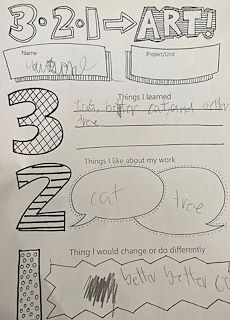 3·2·1→ART!
Name
Project/Unit
3
Things I learned
better cat and better
tree
Things I like about my work
2
cat
tree
Thing I would change or do differently
1
better better